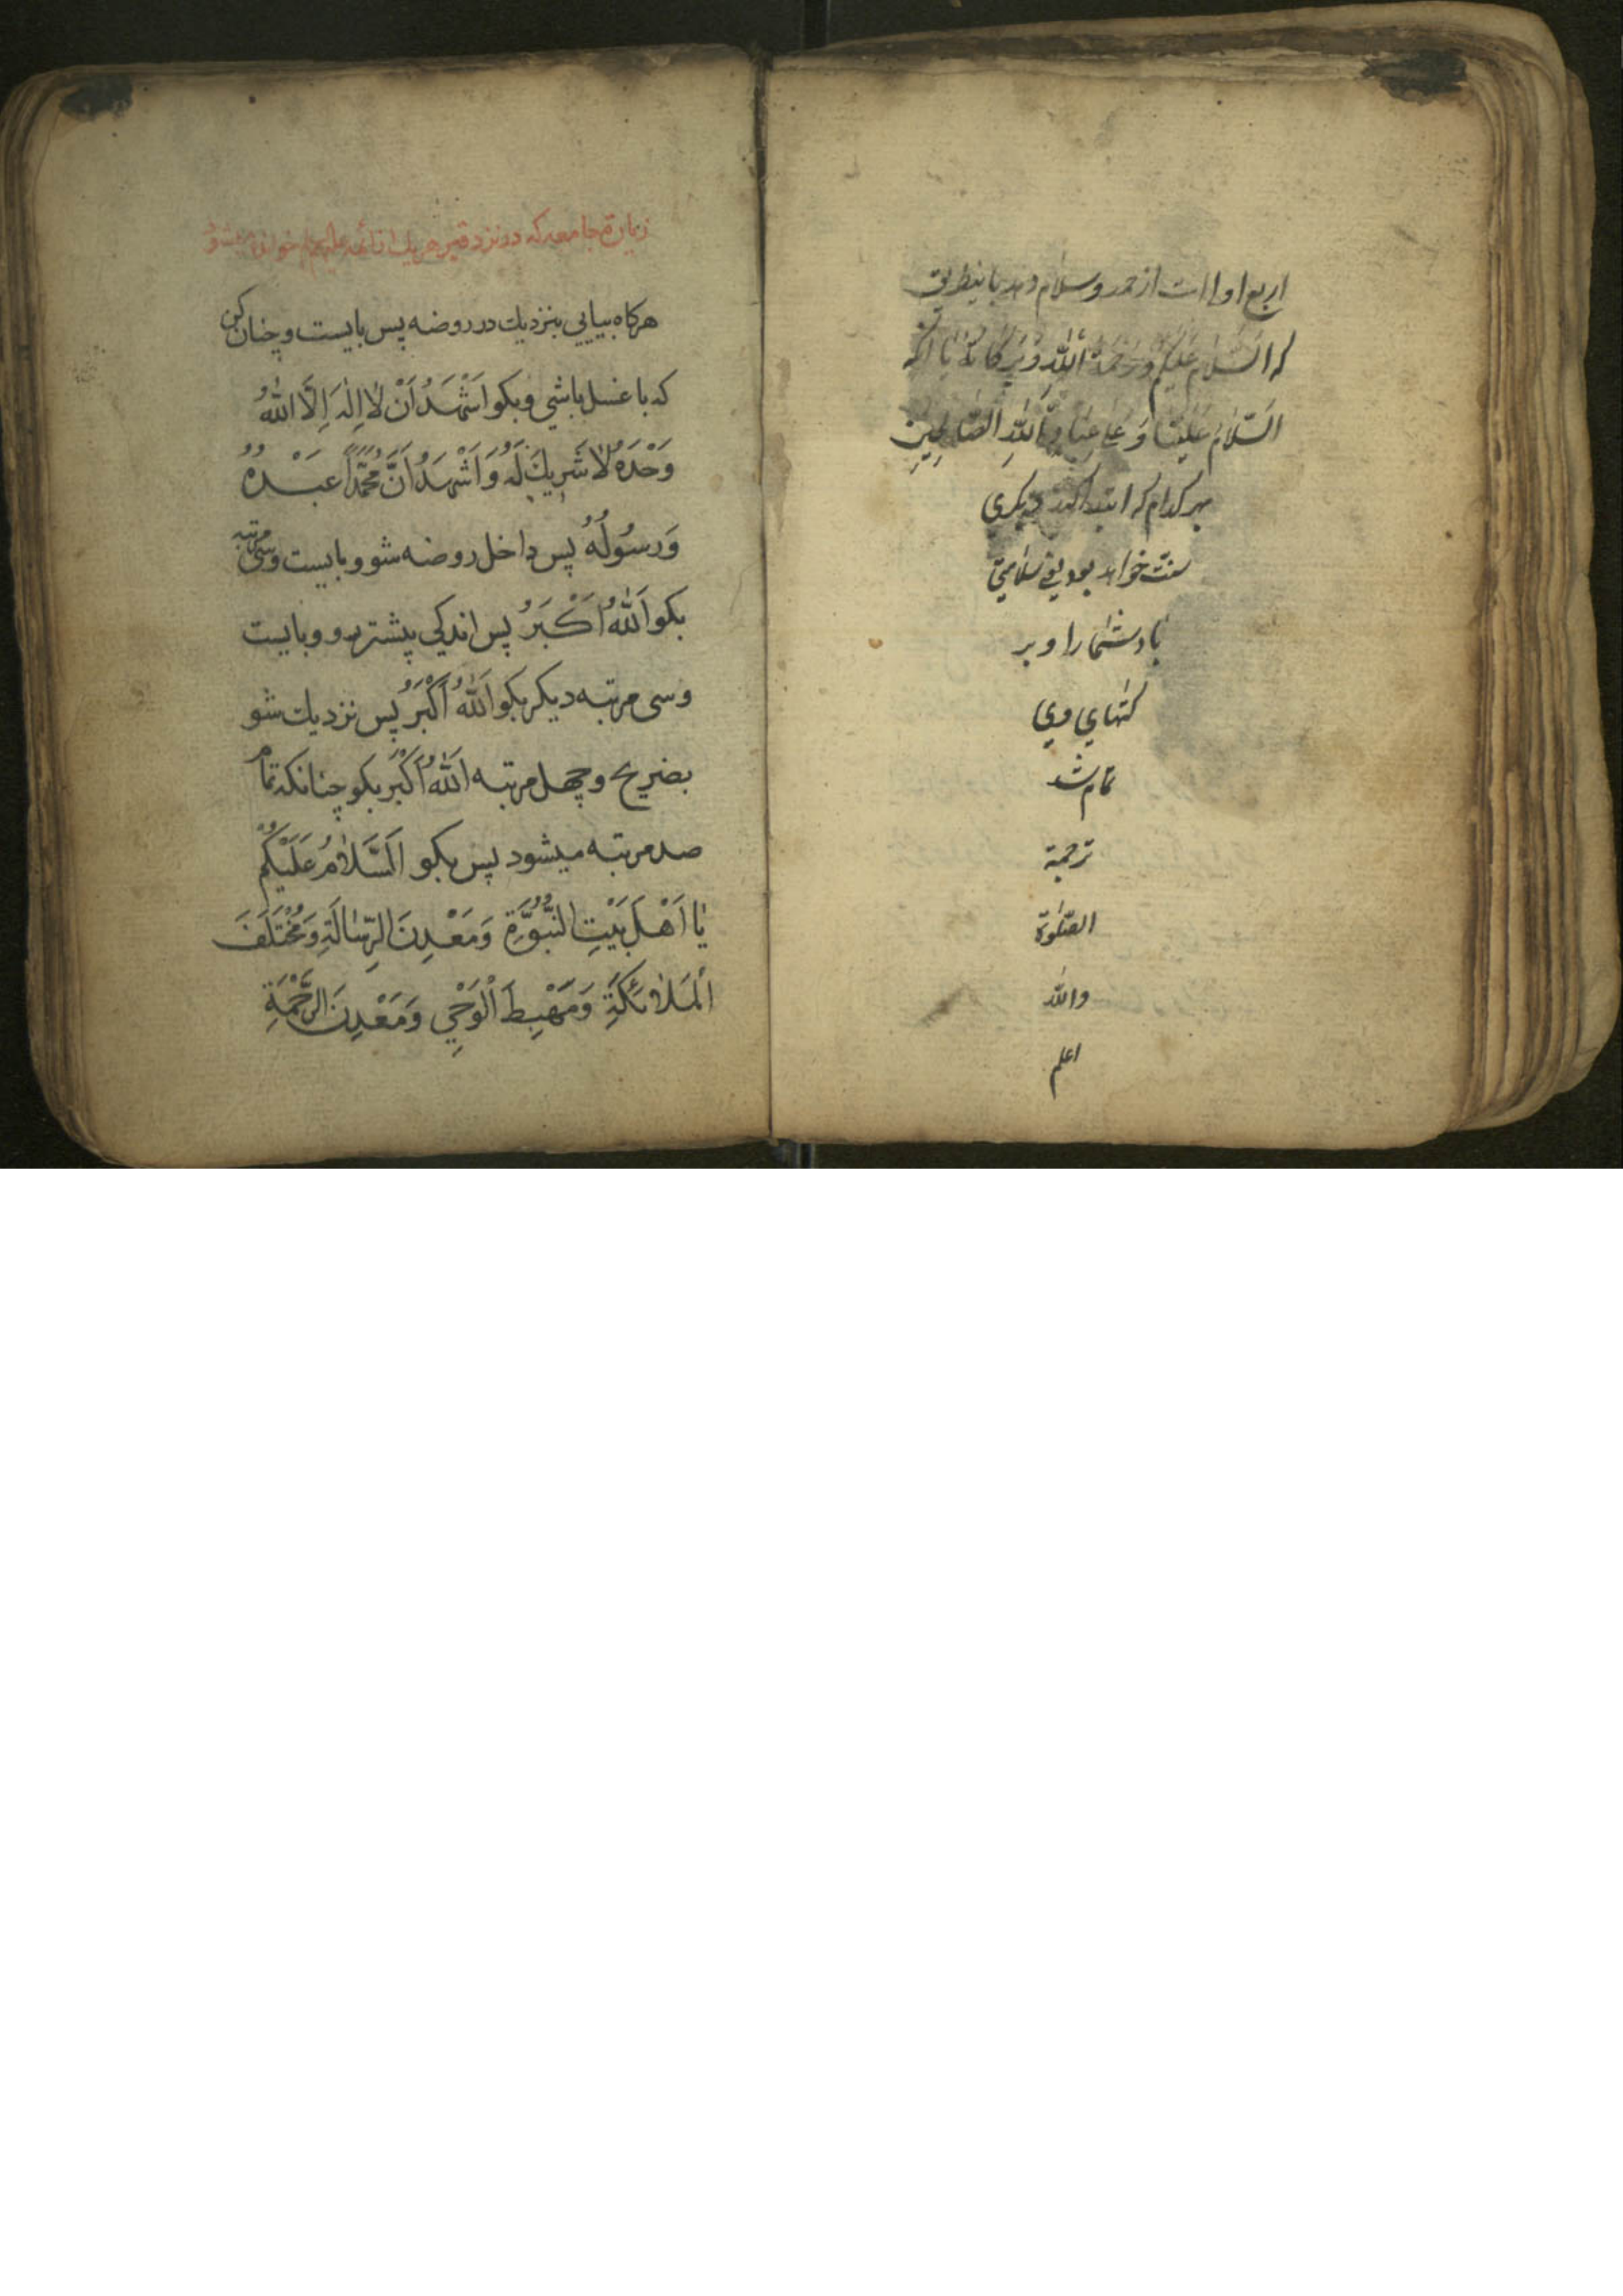 اربع اولی است از حمد و سلام دهد باینطریق
که السَّلامُ عَلَیکُم وَرَحْمَةُ اللّٰهِ وَبَرَکاتُهُ یا آنکه
اَلسَّلامُ عَلَیْنا وَ عَلی عِبادِ اَللّٰهِ الصّالِحینَ
بهر کدام که ابتدا کند دیکری
سنت خواهد بود یعنی سلامتی
باد شما را و بر
تمام شد
ترجمة
الصّلوة
واللّه
اعلم
زیارة جامعه که در نزد قبر هر یك از ائمه علیهم خوانده میشود
هرکاه بیایی بنزدیك در روضه پس بایست و چنان کن
که با غسل باشی و بکو اَشْهَدُ اَنْ لٰا اِلٰهَ اِلَّا اللّٰهُ
وَحْدَهُ لٰا شَرِیكَ لَهُ وَ اَشْهَدُ اَنَّ مُحَمَّدًا عَبْدُهُ
وَرَسُولُهُ پس داخل روضه شو و بایست و سی مرتبه
بکو اَللّٰهُ اَکْبَرُ پس اندکی پیشتر رو و بایست
و سی مرتبه دیکر بکو اَللّٰهُ اَکْبَرُ پس نزدیك شو
بضریح و چهل مرتبه اَللّٰهُ اَکْبَرُ بکو چنانکه تمام
صد مرتبه میشود پس بکو اَلسَّلٰامُ عَلَیْکُمْ
یٰا اَهْلَ بَیْتِ النُّبُوَّةِ وَمَعْدِنَ الرِّسٰالَةِ وَمُخْتَلَفَ
اَلْمَلٰائِکَةِ وَمَهْبِطَ الْوَحْیِ وَمَعْدِنَ الرَّحْمَةِ